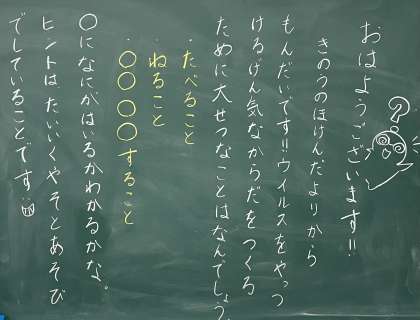 おはようございます!!
きのうのほけんだよりから
もんだいです!!ウイルスをやっつ
けるげん気なからだをつくる
ために大せつなことはなんでしょう。
・たべること
・ねること
・○○○○すること
○になにがはいるかわかるかな。
ヒントは、たいいくやそとあそび
でしていることです。
?